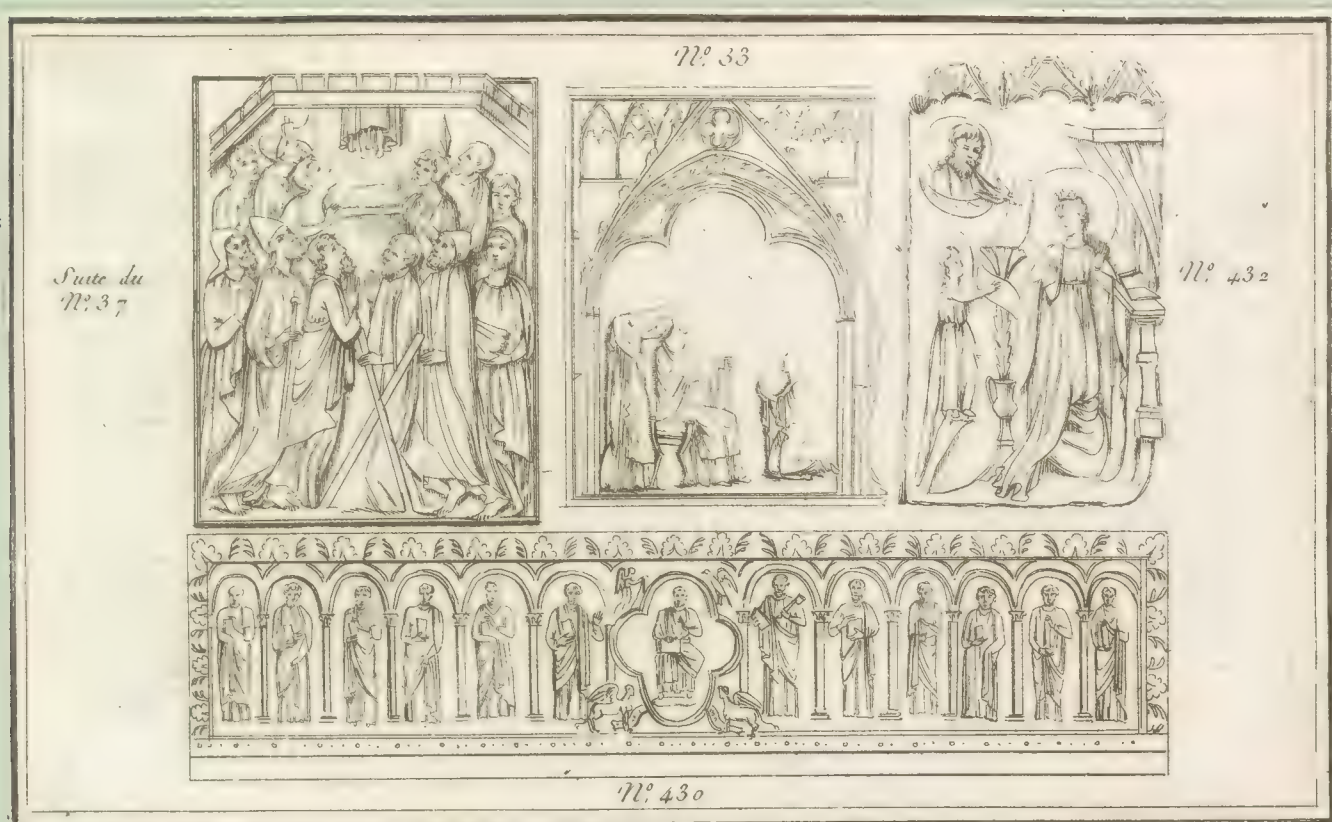 N.º 33
Suite du
N.º 37
N.º 432
N.º 430